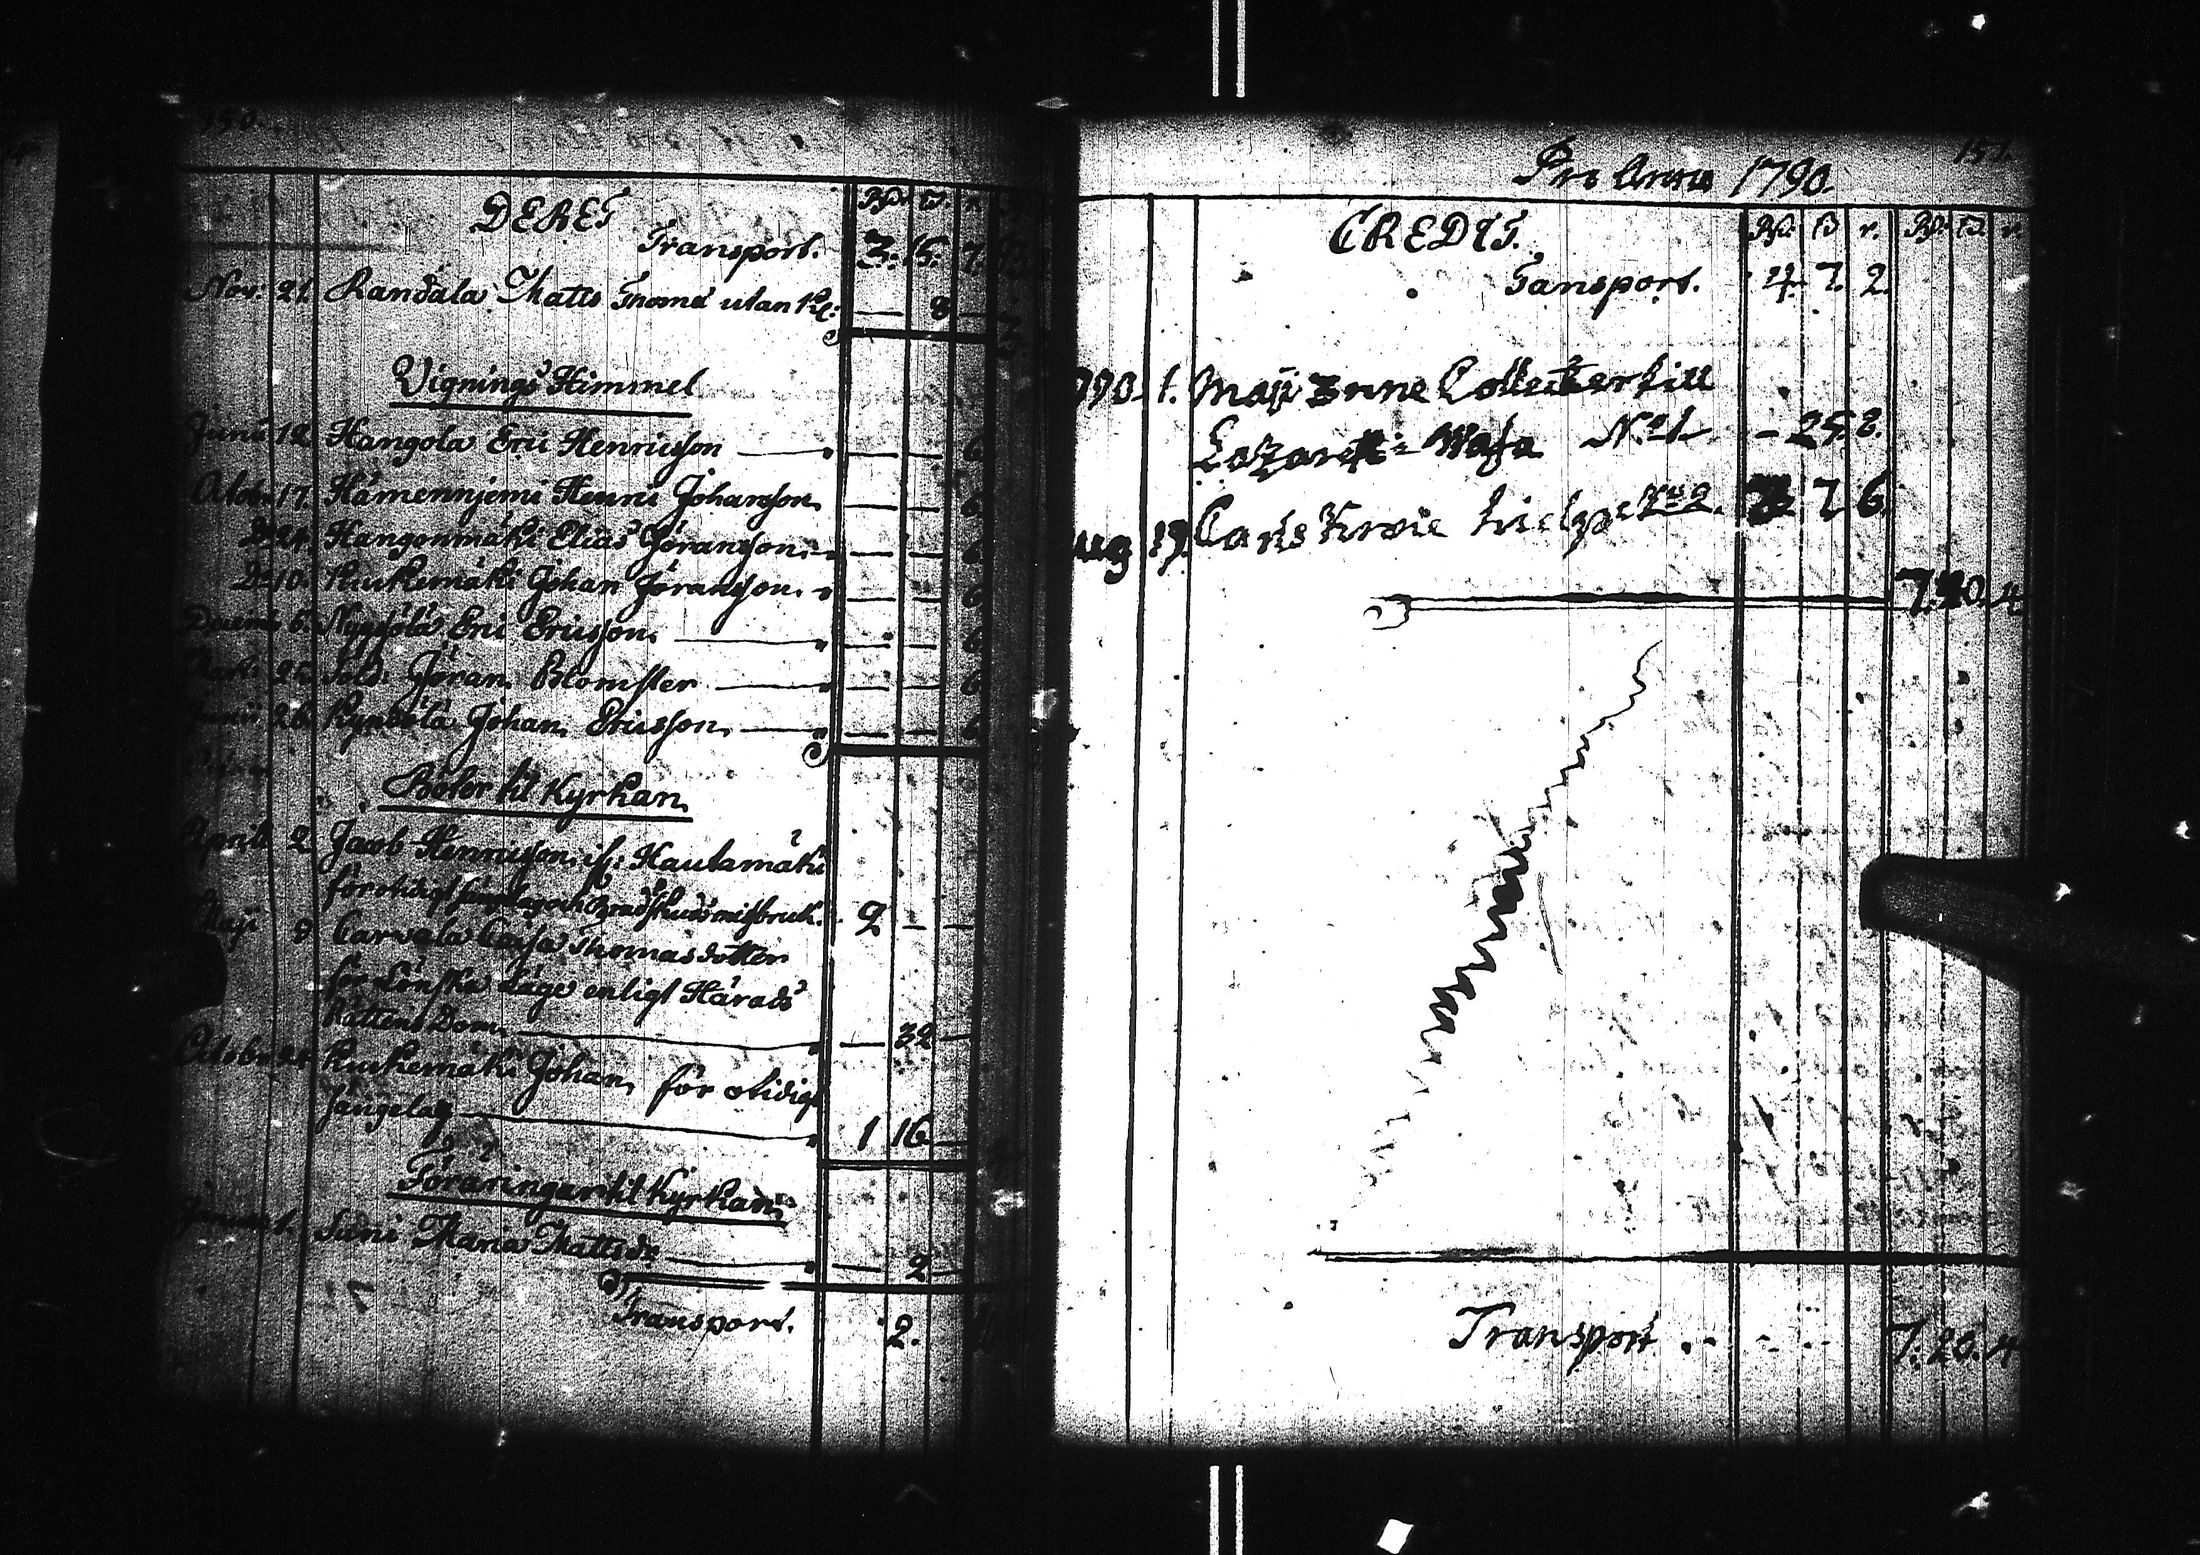 150.
DEBET
Transport. 3. 15. 7.
Nov: 21. Randala Matts Thomæ utan Kl: — 8 —
Vignings Himmel
Junii 12. Hangola Eric Henricsson — — — 6
Octob. 17. Hämennjemi Henric Johansson — — 6
D:o 24. Hangonmäki Elias Göransson — — 6
D:o 10. Kuckemäki Johan Göransson — — 6
6. Eric Ericsson — — — 6
25. Sold: Göran Blomster — — — 6
Junii 26. Johan Ericsson — — — 6
Böter til Kyrkan
April 2. Jacob Henricsson if: Hautamäki
för otidigt sängelag och 2 —
Maji 9. Carvala Caisa Thomasdotter
för Lönska Läge enligt Härads
Rättens Dom — — 32 —
Octobr 24. Kuckemäki Johan för otidigt
sängelag — 1 16 —
Föräringar til Kyrkan
1. Suni Maria Matts dr — — 2 —
Transport. 2.
151.
Pro Anno 1790.
CREDIT.
Tansport. 4. 7. 2.
1790. 1. Maji Enne Collecter till
Lazarets Wasa N:o 1 - 25. 2.
Aug 19. Carls Krosie hielp N:o 2. 7 6.
7. 20. 4
Transport .. - .. 7. 20. 4